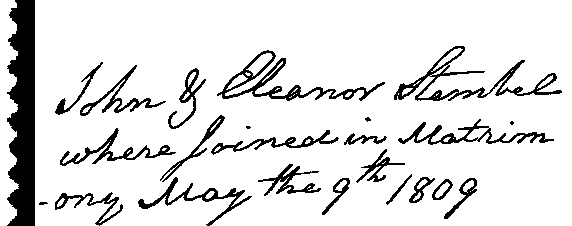 John & Eleanor Stembel
where Joined in Matrim
-ony May the 9th 1809